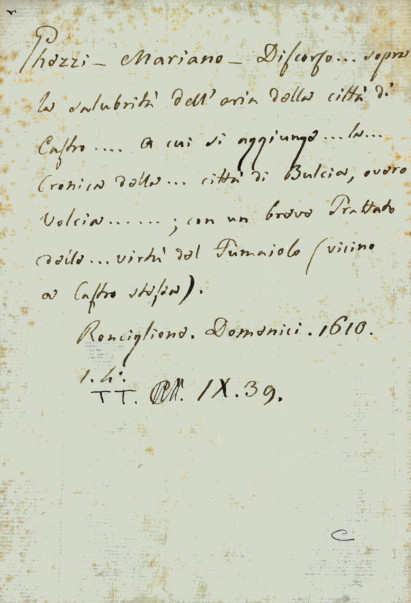 Ghezzi - Mariano - Discorso... sopra
la salubrità dell'aria della città di
Castro.... a cui si aggiunge...la...
Cronica della... città di Bulcia, overo
Volcia......; con un breve Trattato
delle...virtù del Fumaiolo (vicino
a Castro stessa).
Ronciglione. Domenici. 1610.
1. 4º.
TT. IX. 39.
C